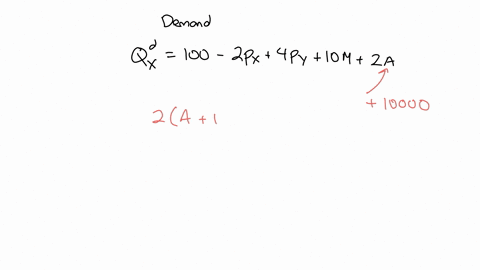 Demand
Qxᵈ = 100 - 2Px + 4Py + 10M + 2A
+ 10000
2(A + 1